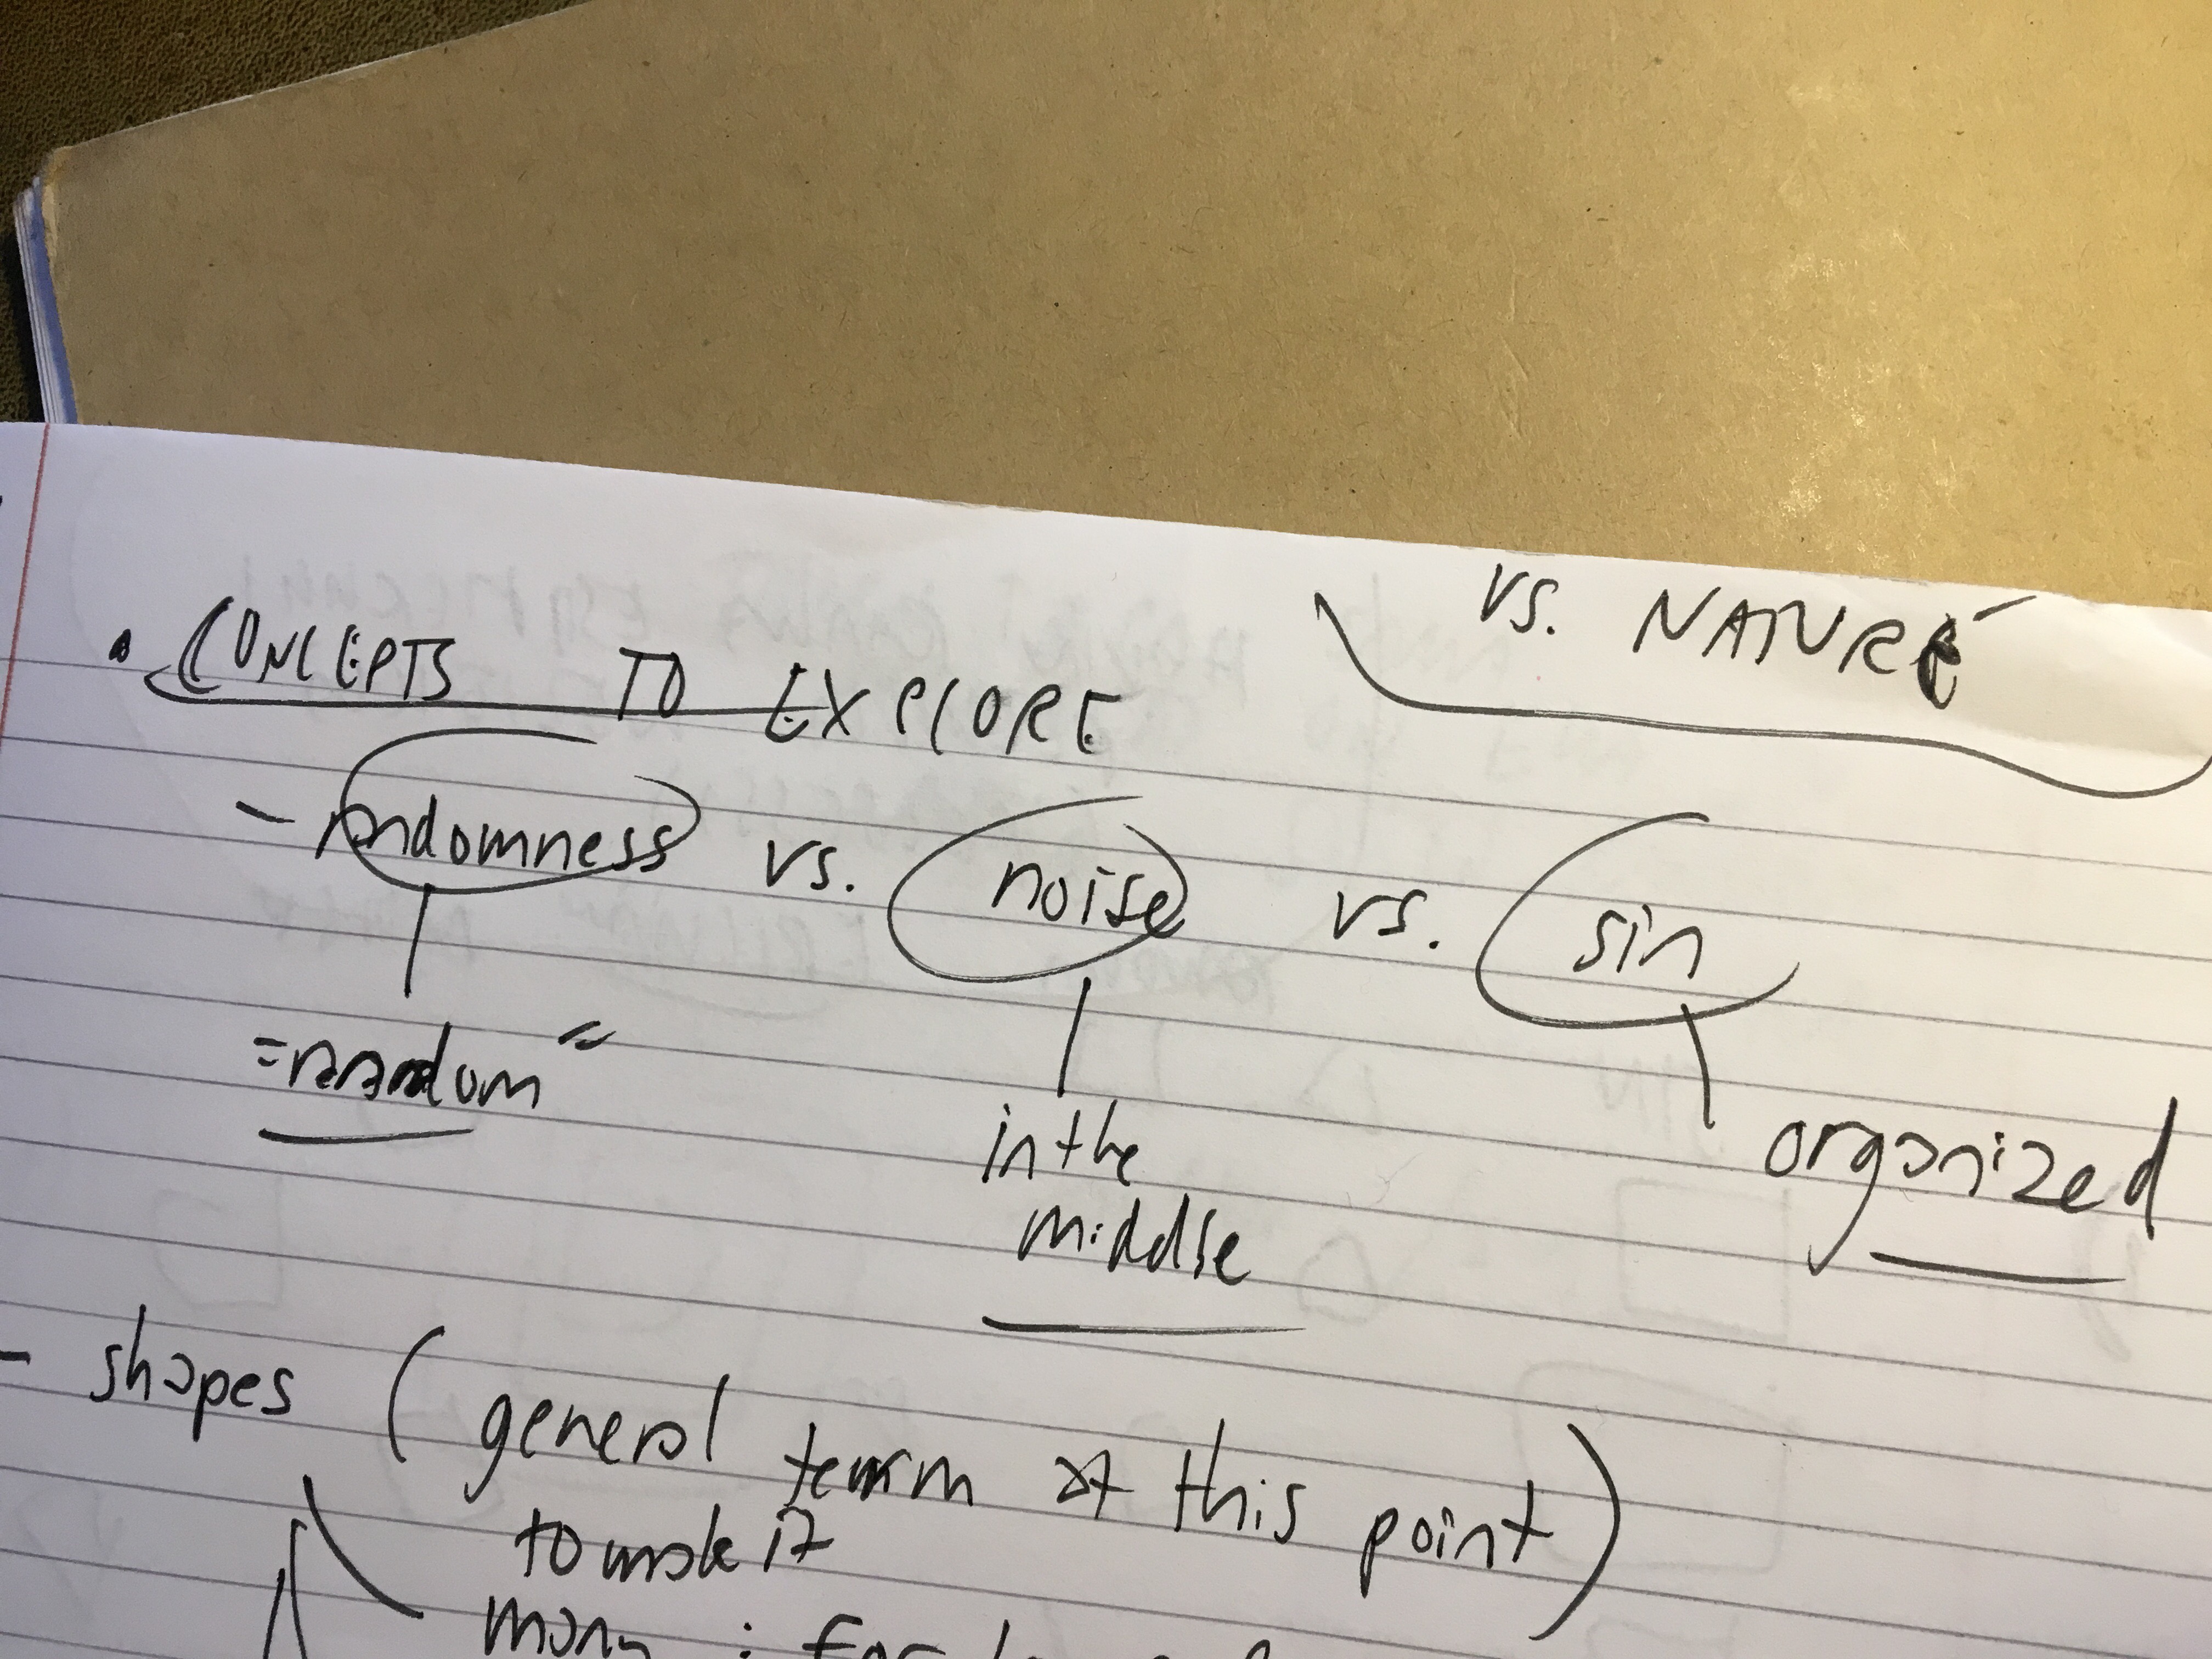 vs. NATURE
• CONCEPTS TO EXPLORE
- randomness vs. noise vs. sin
"random"
in the
middle
organized
- shapes (general term at this point)
to make it
many : for